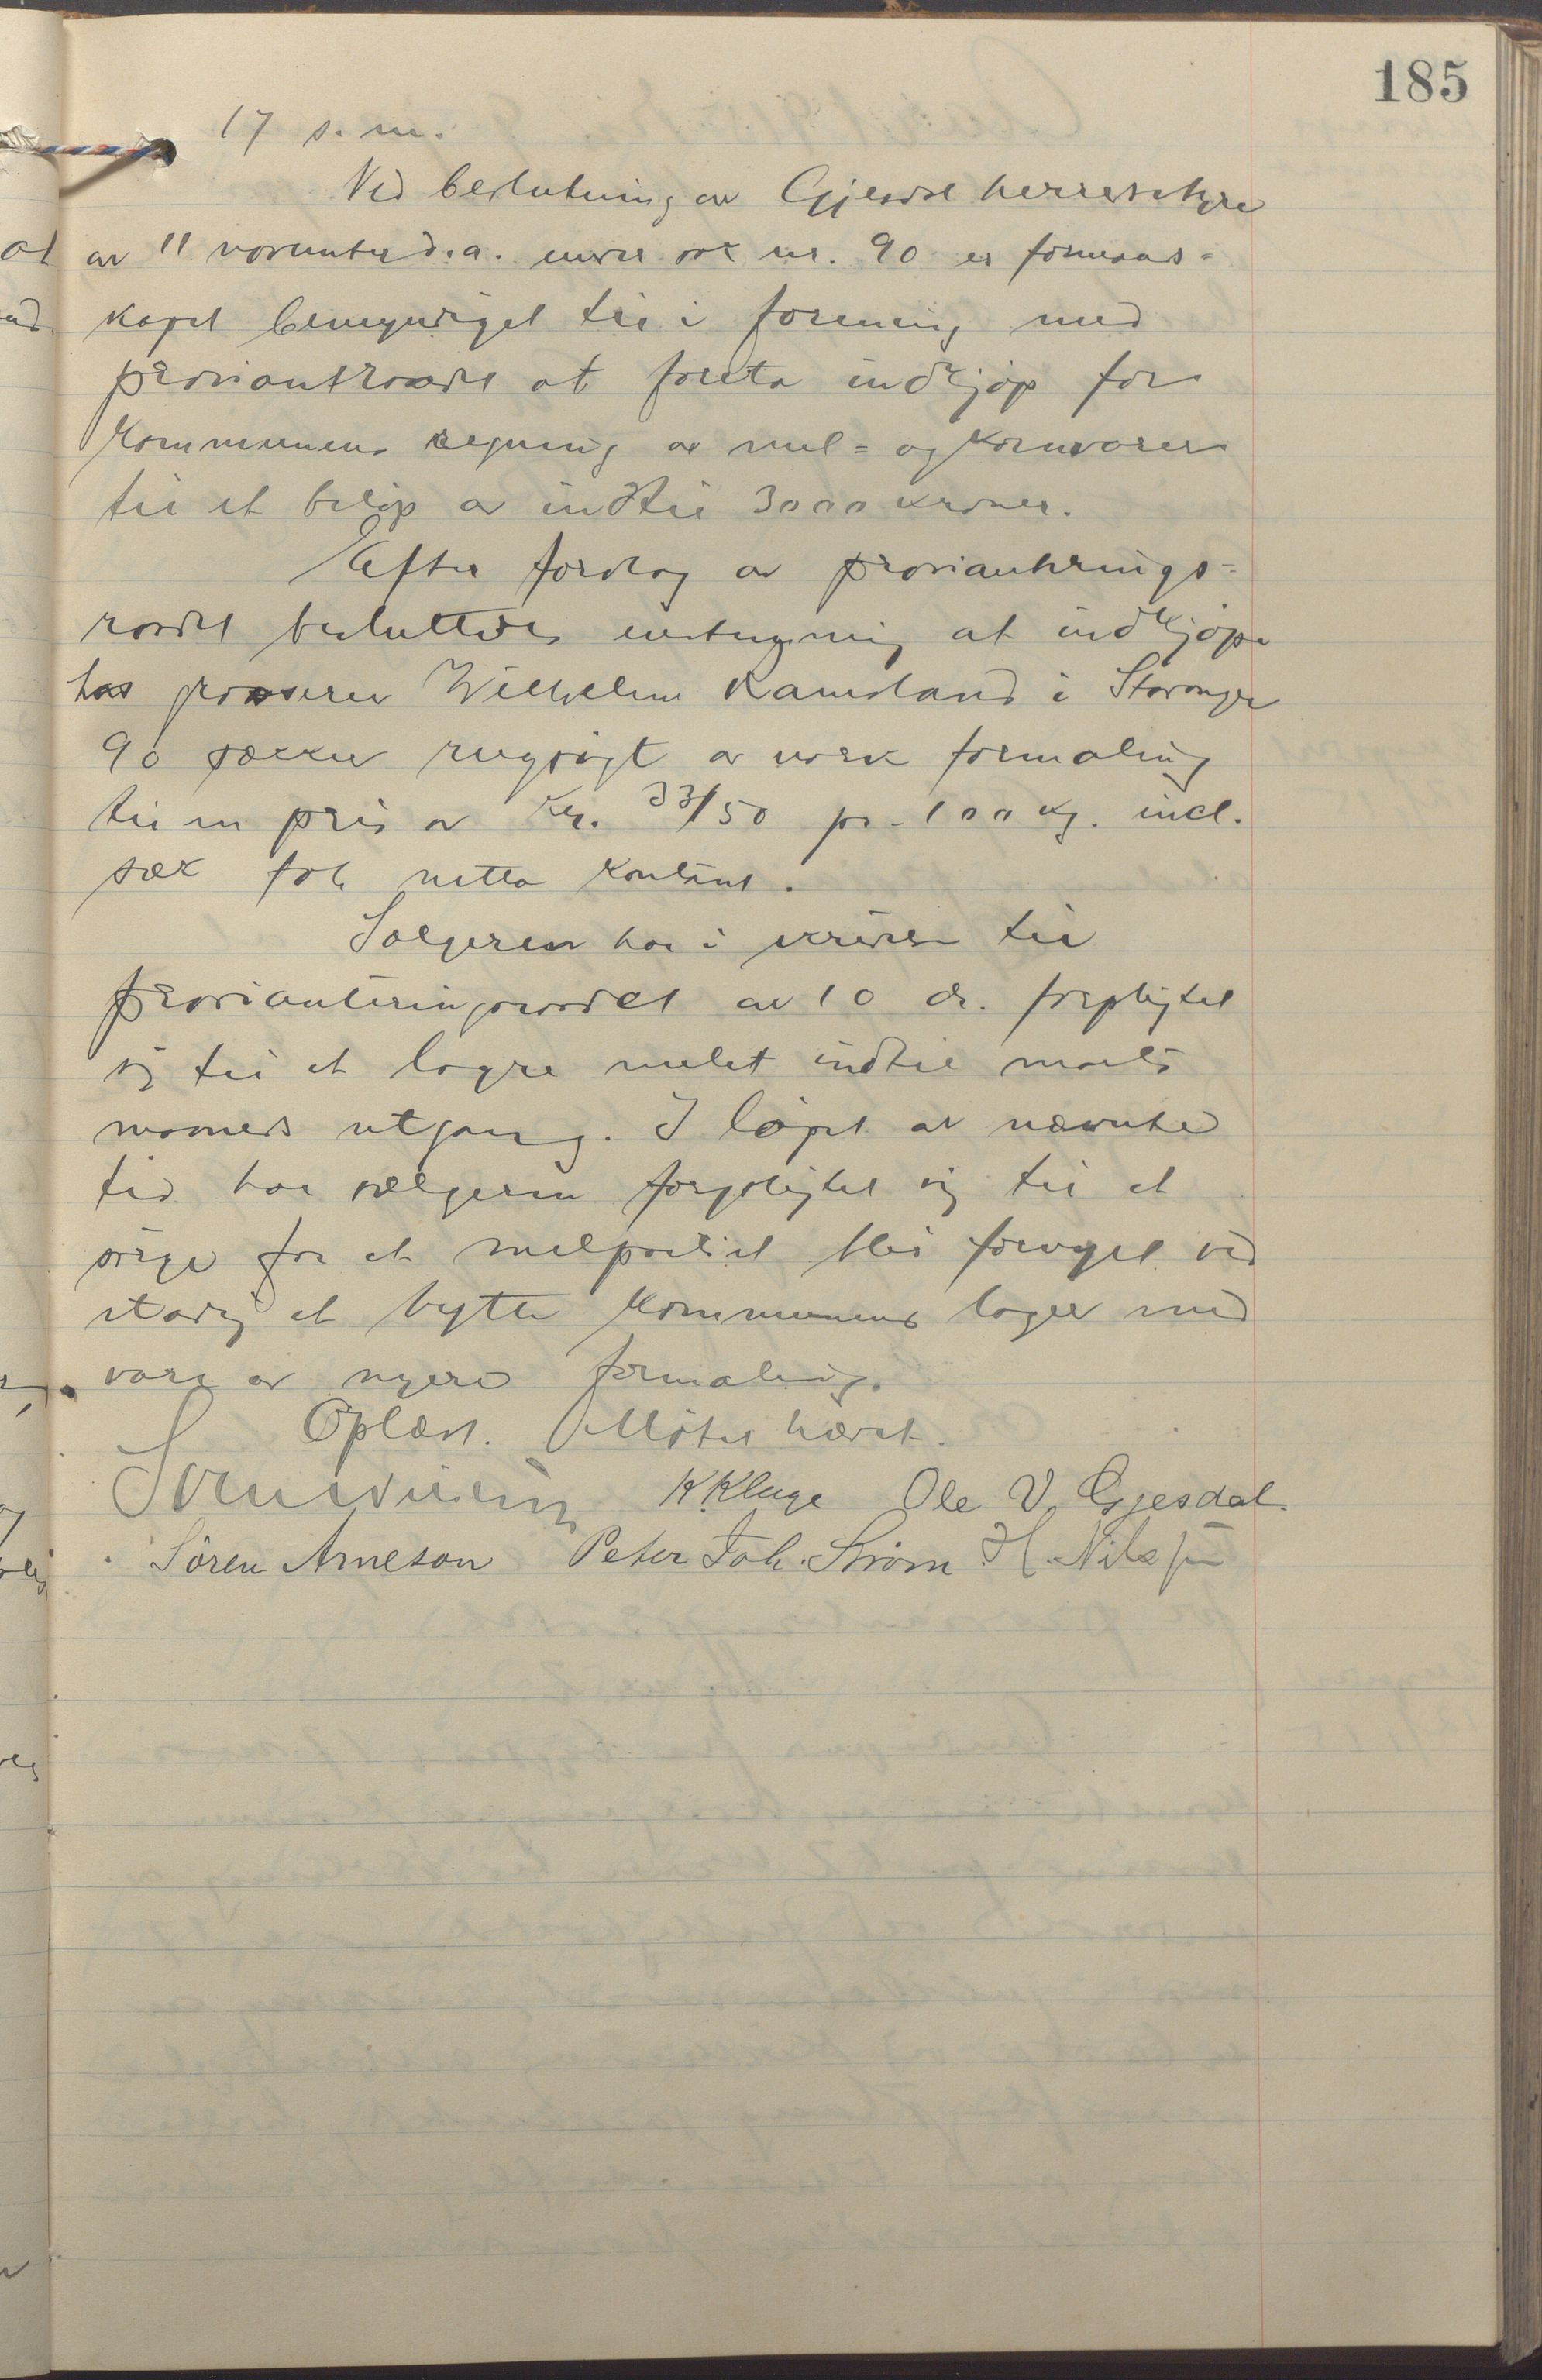 185
17 s. m.
Ved beslutning av Gjesdal herredstyre
av 11 november d. a. under sak nr. 90 er formands-
kapet bemyndiget til i forening med
proviantraadet at foreta indkjøp for
kommunens regning av mel- og kornvarer
til et beløp av indtil 3000 kroner.
Efter forslag av provianterings-
raadet besluttedes enstemmig at indkjøpe
hos grosserer Wilhelm Ramsland i Stavanger
90 sækker rugsigt av norsk formaling
til en pris av kr. 33/50 pr. 100 kg. incl.
sæk fob netto kontant.
Sælgeren har i skrivelse til
provianteringsraadet av 10 ds. forpligtet
sig til at lagre melet indtil marts
maaneds utgang. I løpet av nævnte
tid har sælgeren forpligtet sig til at
sørge for at melpartiet blir fornyet ved
stadig at bytte kommunens lager med
vare av nyere formaling.
Oplæst. Møtet hævet.
K. Kluge Ole V. Gjesdal.
Sören Arneson Peter Joh. Ström H. Nilsen